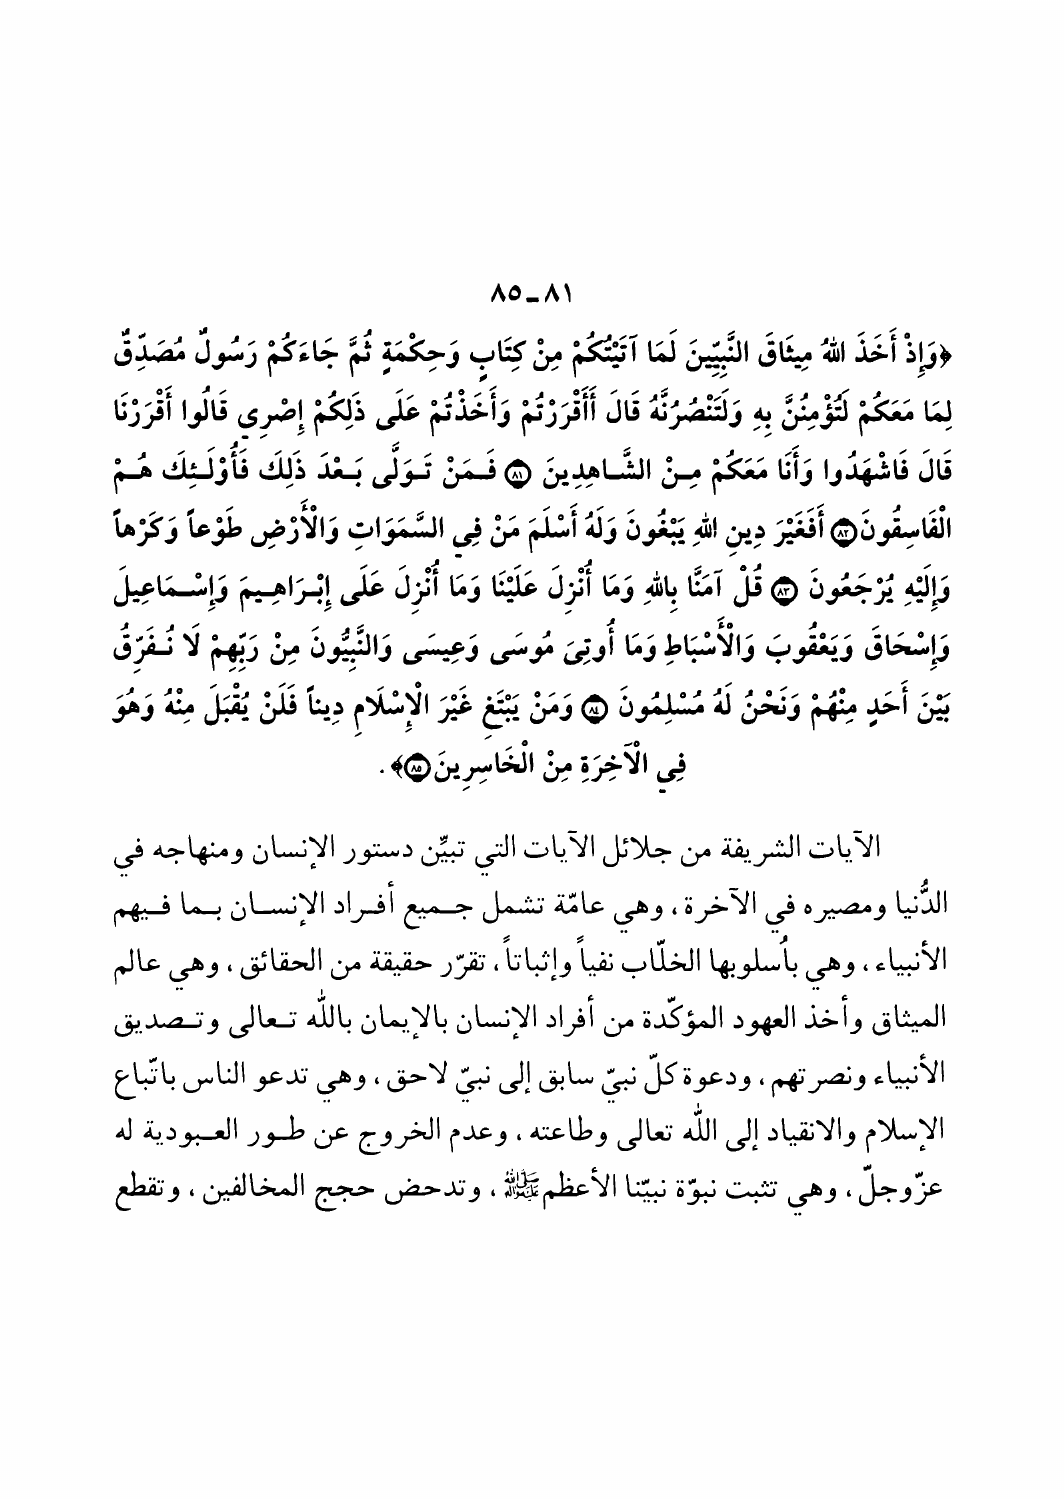 ٨١ـ٨٥
﴿وَإِذْ أَخَذَ اللهُ مِيثَاقَ النَّبِيِّينَ لَمَا آتَيْتُكُمْ مِنْ كِتَابٍ وَحِكْمَةٍ ثُمَّ جَاءَكُمْ رَسُولٌ مُصَدِّقٌ
لِمَا مَعَكُمْ لَتُؤْمِنُنَّ بِهِ وَلَتَنْصُرُنَّهُ قَالَ أَأَقْرَرْتُمْ وَأَخَذْتُمْ عَلَى ذَلِكُمْ إِصْرِي قَالُوا أَقْرَرْنَا
قَالَ فَاشْهَدُوا وَأَنَا مَعَكُمْ مِـنْ الشَّـاهِدِينَ ٨١ فَـمَنْ تَـوَلَّى بَـعْدَ ذَلِكَ فَأُوْلَـئِكَ هُـمْ
الْفَاسِقُونَ ٨٢ أَفَغَيْرَ دِينِ اللهِ يَبْغُونَ وَلَهُ أَسْلَمَ مَنْ فِي السَّمَوَاتِ وَالْأَرْضِ طَوْعاً وَكَرْهاً
وَإِلَيْهِ يُرْجَعُونَ ٨٣ قُلْ آمَنَّا بِاللهِ وَمَا أُنْزِلَ عَلَيْنَا وَمَا أُنْزِلَ عَلَى إِبْـرَاهِـيمَ وَإِسْـمَاعِيلَ
وَإِسْحَاقَ وَيَعْقُوبَ وَالْأَسْبَاطِ وَمَا أُوتِيَ مُوسَى وَعِيسَى وَالنَّبِيُّونَ مِنْ رَبِّهِمْ لَا نُـفَرِّقُ
بَيْنَ أَحَدٍ مِنْهُمْ وَنَحْنُ لَهُ مُسْلِمُونَ ٨٤ وَمَنْ يَبْتَغِ غَيْرَ الْإِسْلَامِ دِيناً فَلَنْ يُقْبَلَ مِنْهُ وَهُوَ
فِي الْآخِرَةِ مِنْ الْخَاسِرِينَ ٨٥﴾.
الآيات الشريفة من جلائل الآيات التي تبيِّن دستور الإنسان ومنهاجه في
الدُّنيا ومصيره في الآخرة، وهي عامّة تشمل جـميع أفـراد الإنسـان بـما فـيهم
الأنبياء، وهي بأُسلوبها الخلّاب نفياً وإثباتاً، تقرّر حقيقة من الحقائق، وهي عالم
الميثاق وأخذ العهود المؤكّدة من أفراد الإنسان بالإيمان باللّه تـعالى وتـصديق
الأنبياء ونصرتهم، ودعوة كلّ نبيّ سابق إلى نبيّ لاحق، وهي تدعو الناس باتّباع
الإسلام والانقياد إلى اللّه تعالى وطاعته، وعدم الخروج عن طـور العـبودية له
عزّوجلّ، وهي تثبت نبوّة نبيّنا الأعظم ﷺ، وتدحض حجج المخالفين، وتقطع